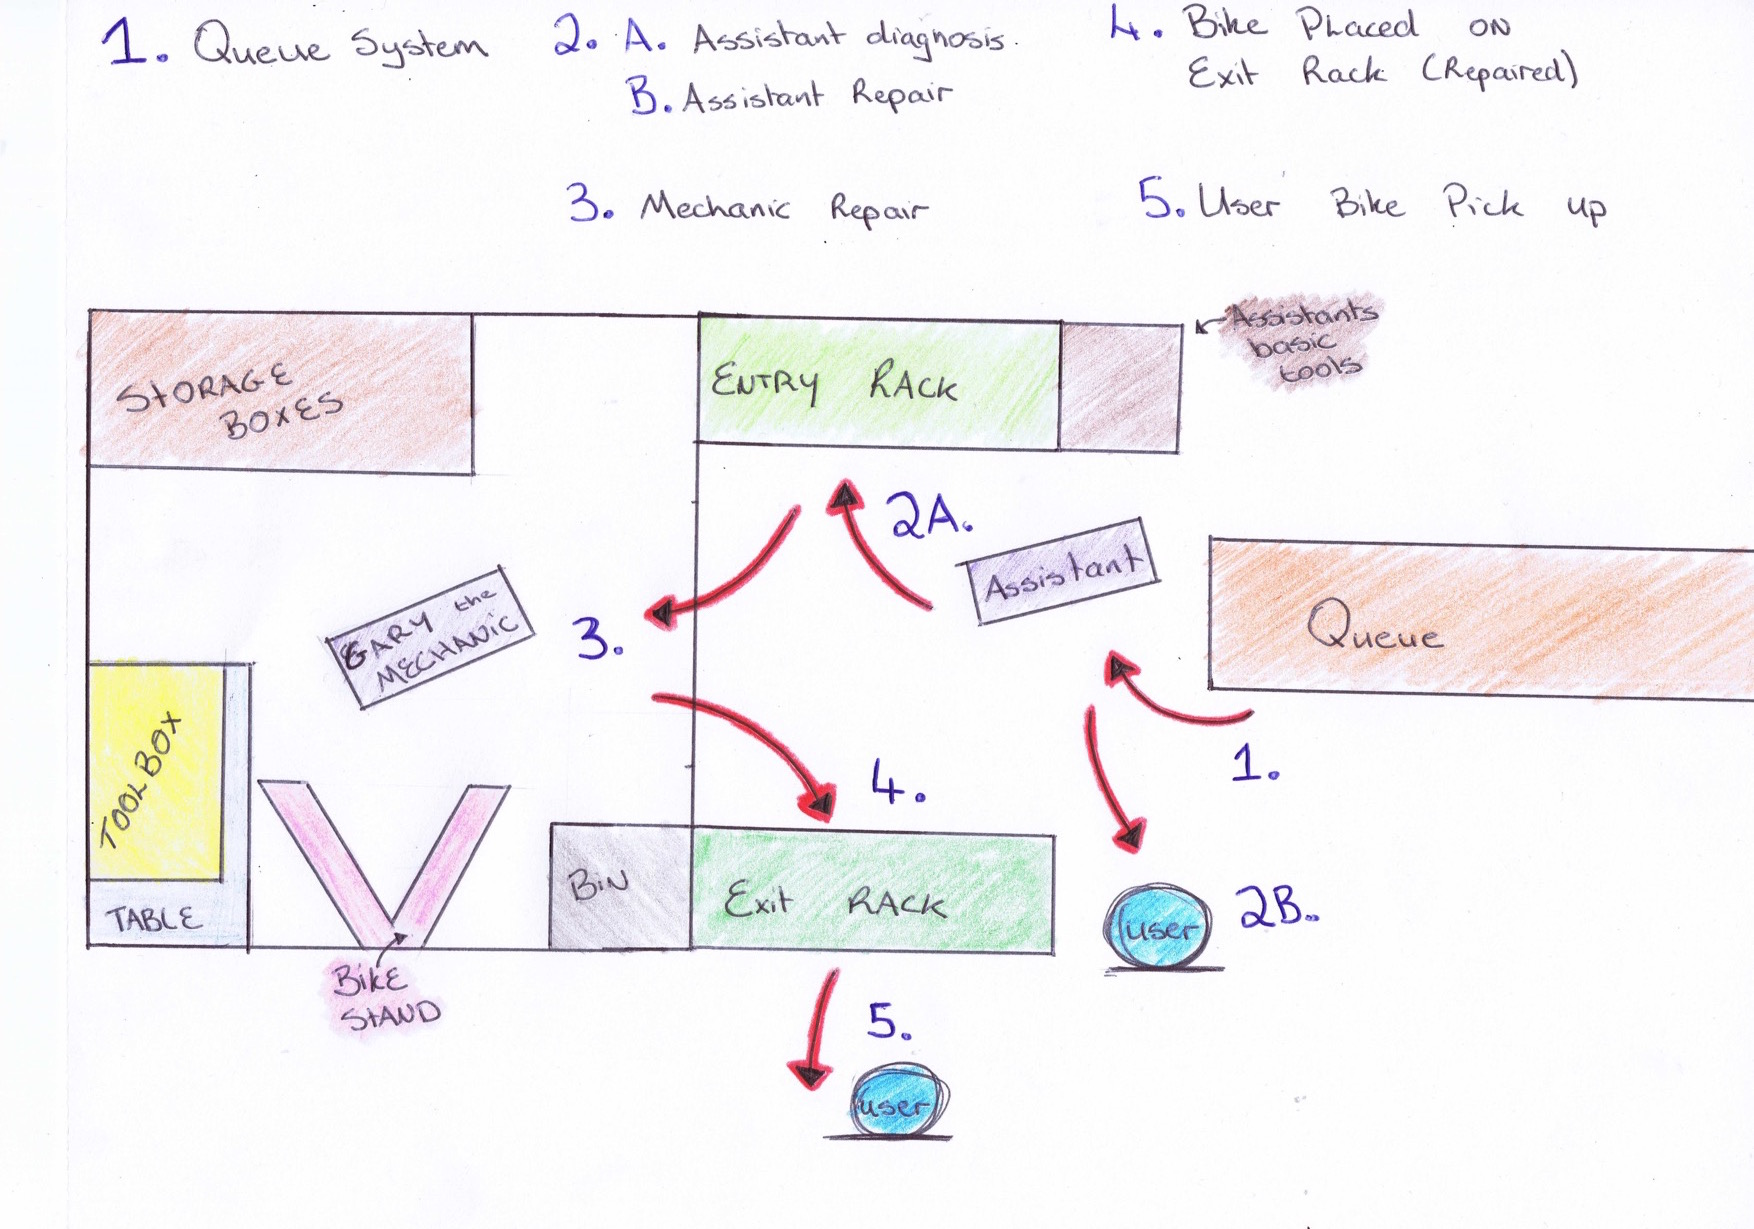 1. Queue System
2. A. Assistant diagnosis.
B. Assistant Repair
3. Mechanic Repair
4. Bike Placed on
Exit Rack (Repaired)
5. User Bike Pick up
STORAGE
BOXES
ENTRY RACK
Assistants
basic
tools
2A.
Assistant
Queue
GARY the
MECHANIC
3.
1.
TOOLBOX
4.
TABLE
BIN
Exit RACK
user
2B.
BIKE
STAND
5.
user